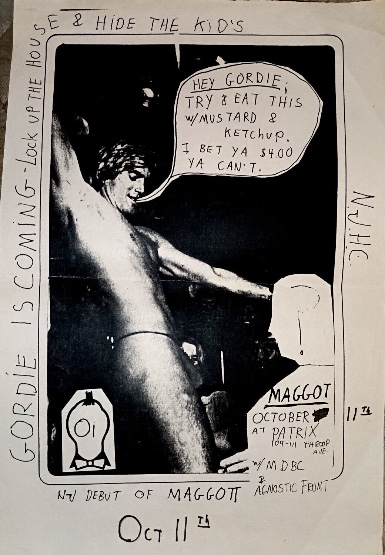 GORDIE IS COMING - Lock UP THE HOUSE & HIDE THE KID'S
HEY GORDIE,
TRY & EAT THIS
W/MUSTARD &
KETCHUP.
I BET YA $4.00
YA CAN'T.
NJHC
OI
MAGGOT
OCTOBER 11TH
AT PATRIX
THROOP
AVE
W/ MDBC
& AGNOSTIC FRONT
NJ DEBUT OF MAGGOTT
OCT 11TH